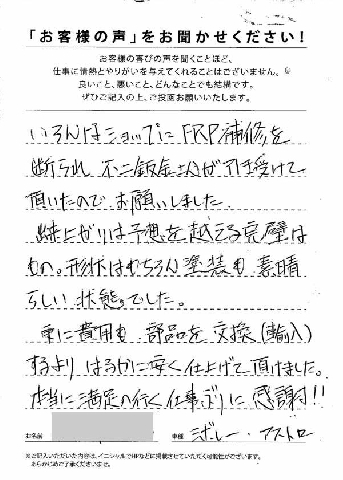 「お客様の声」をお聞かせください！
お客様の喜びの声を聞くことほど、
仕事に情熱とやりがいを与えてくれることはございません。
良いこと、悪いこと、どんなことでも結構です。
ぜひご記入の上、ご投函お願いいたします。
いろんなショップにFRP補修を
断られ 不二鈑金さんが引き受けて
頂いたので お願いしました。
仕上がりは予想を越える完璧な
もの。形状はもちろん塗装も 素晴
らしい 状態。でした。
更に費用も 部品を 交換(輸入)
するより はるかに安く仕上げて頂けました。
本当に満足の行く仕事ぶりに 感謝!!
お名前
車種 シボレー・アストロ
※ご記入いただいた内容は、イニシャルでHPなどに掲載させていただく可能性がございます。
あらかじめご了承くださいませ。